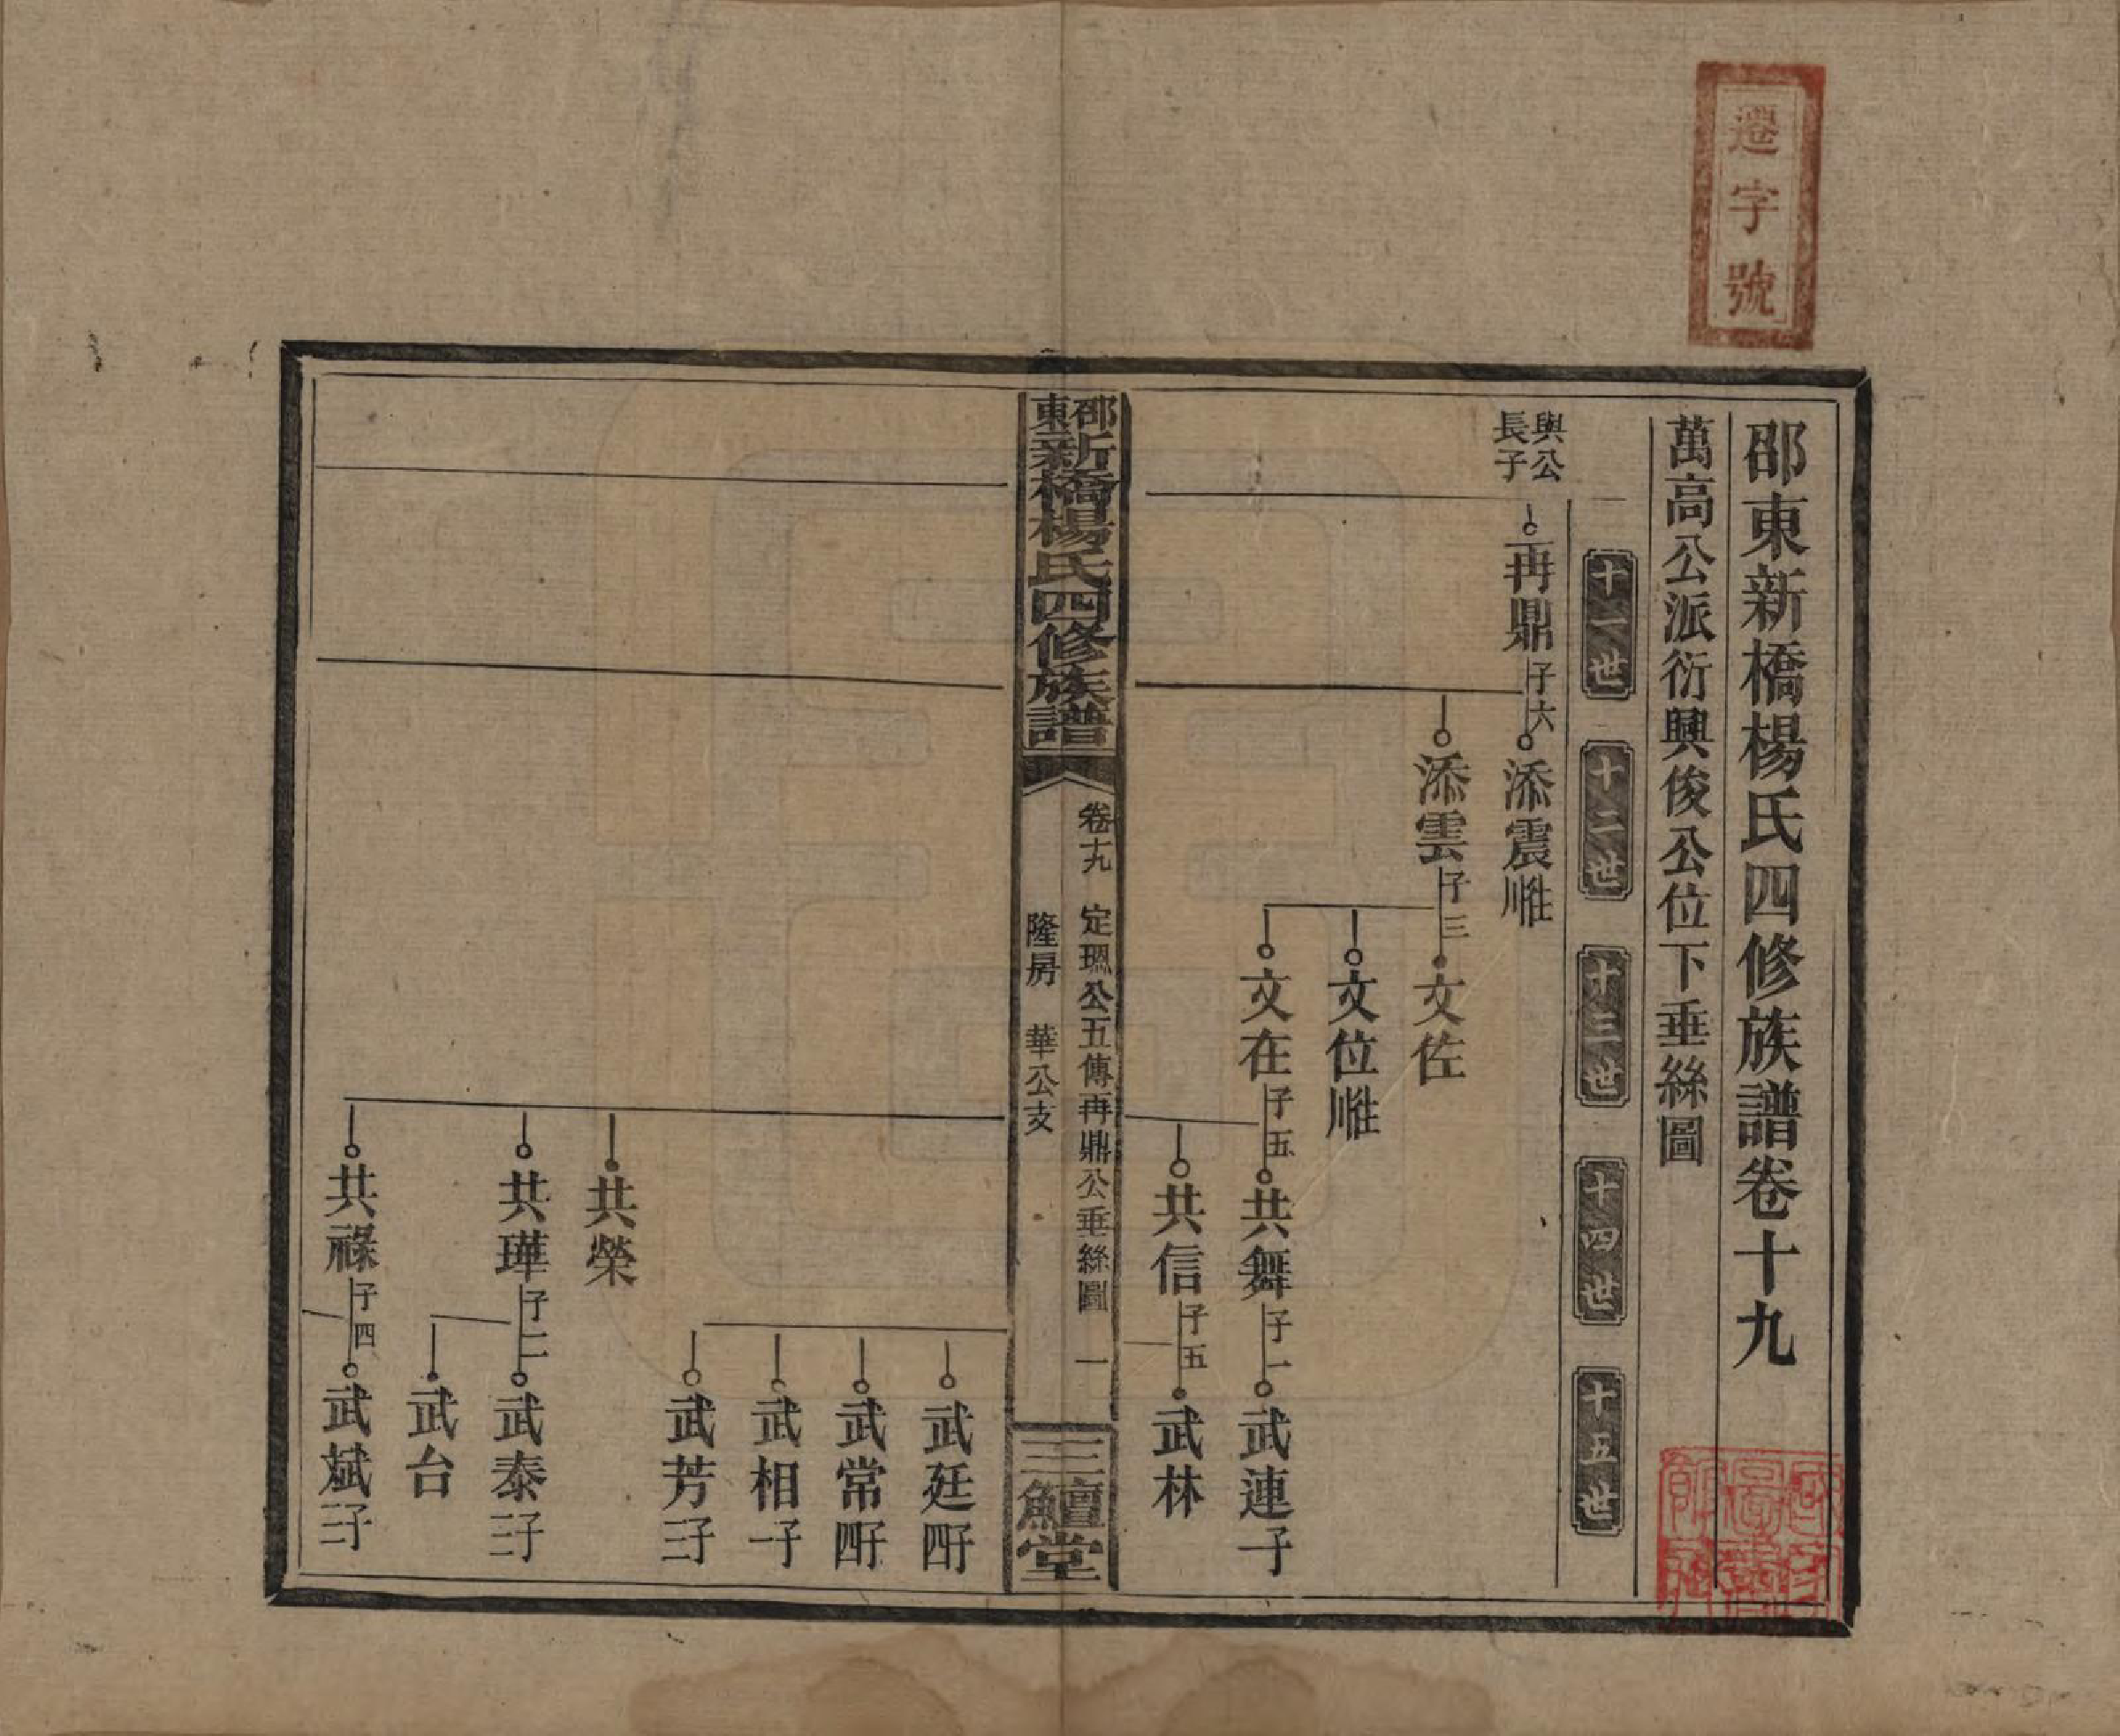 遷字號
邵東新橋楊氏四修族譜卷十九
萬高公派衍興俊公位下垂絲圖
十一世
十二世
十三世
十四世
十五世
與公
長子
再鼎 子六
添震
添雲 子三
文佐
文位
文在 子五
共舞 子一
武連子
共信 子五
武林
邵東新橋楊氏四修族譜
卷十九 定琞公五傳再鼎公垂絲圖 一
隆房 華公支
三鱣堂
武廷
武常
武相
武芳
共榮
共瑋 子二
武泰
武台
共祿 子四
武斌